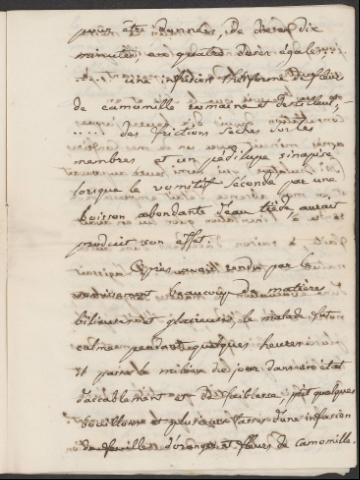 pour etre données, de dix en dix
minutes, en quatre doses égales.
une infusion théiforme de fleurs
de camomille romaine et de tilleul,
..... des frictions seches sur les
membres et un pediluve sinapisé
lorsque le vomitif secondé par une
boisson abondante d'eau tiède, aurait
produit son effet.
Après avoir rendu par le
vomissement beaucoup de matières
bilieuses et glaireuses, le malade fut
calme pendant quelques heures
Il passa le milieu du jour dans un état
d'accablement et de faiblesse, prit quelques
bouillons et plusieurs tasses d'une infusion
de feuilles d'oranger et fleurs de camomille.